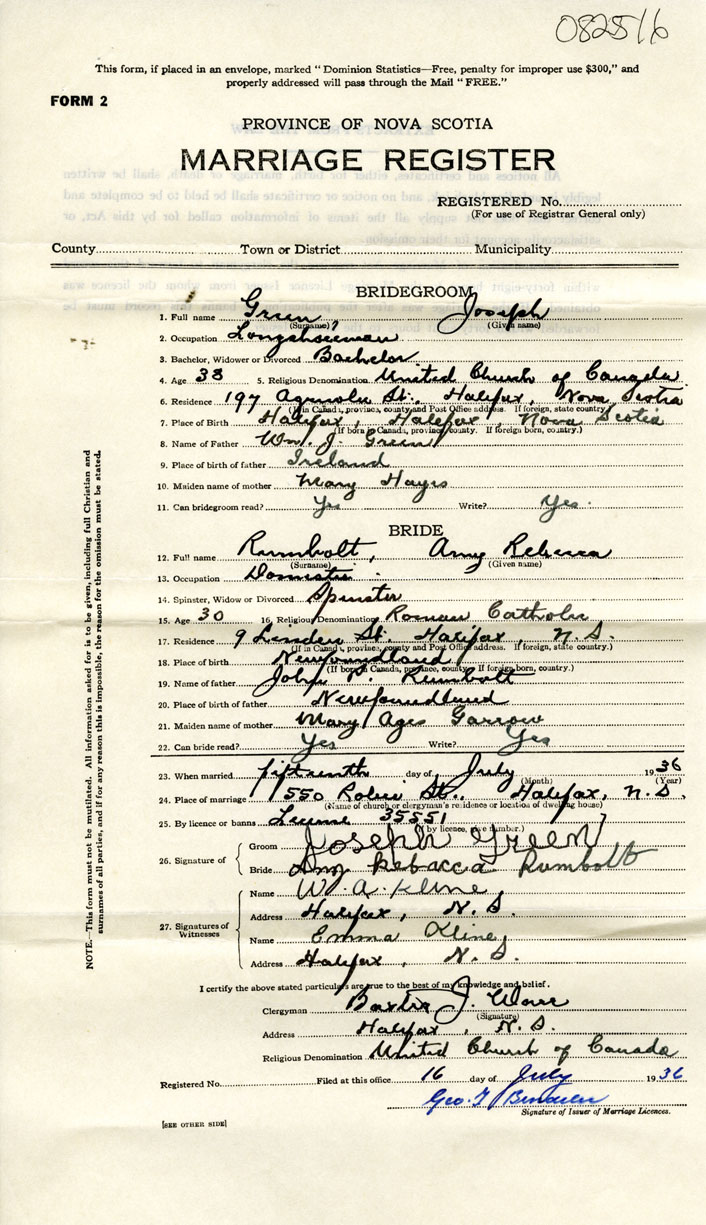 082516
This form, if placed in an envelope, marked "Dominion Statistics—Free, penalty for improper use $300," and
properly addressed will pass through the Mail "FREE."
FORM 2
PROVINCE OF NOVA SCOTIA
MARRIAGE REGISTER
REGISTERED No.
(For use of Registrar General only)
County Town or District Municipality
BRIDEGROOM
1. Full name Green Joseph
(Surname) ? (Given name)
2. Occupation Longshoreman
3. Bachelor, Widower or Divorced Bachelor
4. Age 38 5. Religious Denomination United Church of Canada
6. Residence 197 Agricola St., Halifax, Nova Scotia
(If in Canada, province, county and Post Office address. If foreign, state country.)
7. Place of Birth Halifax, Halifax, Nova Scotia
(If born in Canada, province, county. If foreign born, country.)
8. Name of Father Wm. J. Green
9. Place of birth of father Ireland
10. Maiden name of mother Mary Hayes
11. Can bridegroom read? Yes Write? Yes.
BRIDE
12. Full name Rumbolt, Amy Rebecca
(Surname) (Given name)
13. Occupation Domestic
14. Spinster, Widow or Divorced Spinster
15. Age 30 16. Religious Denomination Roman Catholic
17. Residence 9 Linden St. Halifax, N.S.
(If in Canada, province, county and Post Office address. If foreign, state country.)
18. Place of birth Newfoundland
(If born in Canada, province, county. If foreign born, country.)
19. Name of father John P. Rumbolt
20. Place of birth of father Newfoundland
21. Maiden name of mother Mary Garrow
22. Can bride read? Yes Write? Yes
23. When married fifteenth day of July 1936
(Month) (Year)
24. Place of marriage 550 Robie St., Halifax, N.S.
(Name of church or clergyman's residence or location of dwelling house)
25. By licence or banns License 35551
(If by licence, give number.)
26. Signature of Groom Joseph Green
Bride Amy Rebacca Rumbolt
27. Signatures of Witnesses Name W. A. Kline
Address Halifax, N.S.
Name Emma Kline
Address Halifax, N.S.
I certify the above stated particulars are true to the best of my knowledge and belief.
Clergyman Baxter J.
(Signature)
Address Halifax, N.S.
Religious Denomination United Church of Canada
Registered No. Filed at this office 16 day of July 1936
Geo.
Signature of Issuer of Marriage Licences.
[SEE OTHER SIDE]
NOTE.—This form must not be mutilated. All information asked for is to be given, including full Christian and
surnames of all parties, and if for any reason this is impossible, the reason for the omission must be stated.